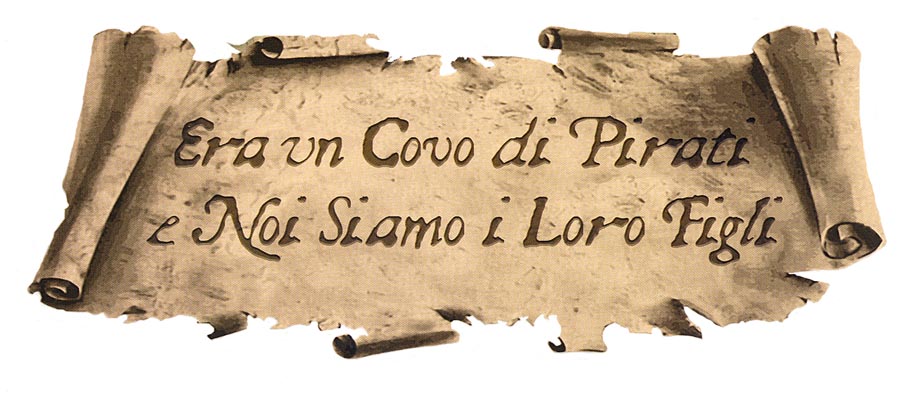 Era un Covo di Pirati
e Noi Siamo i Loro Figli